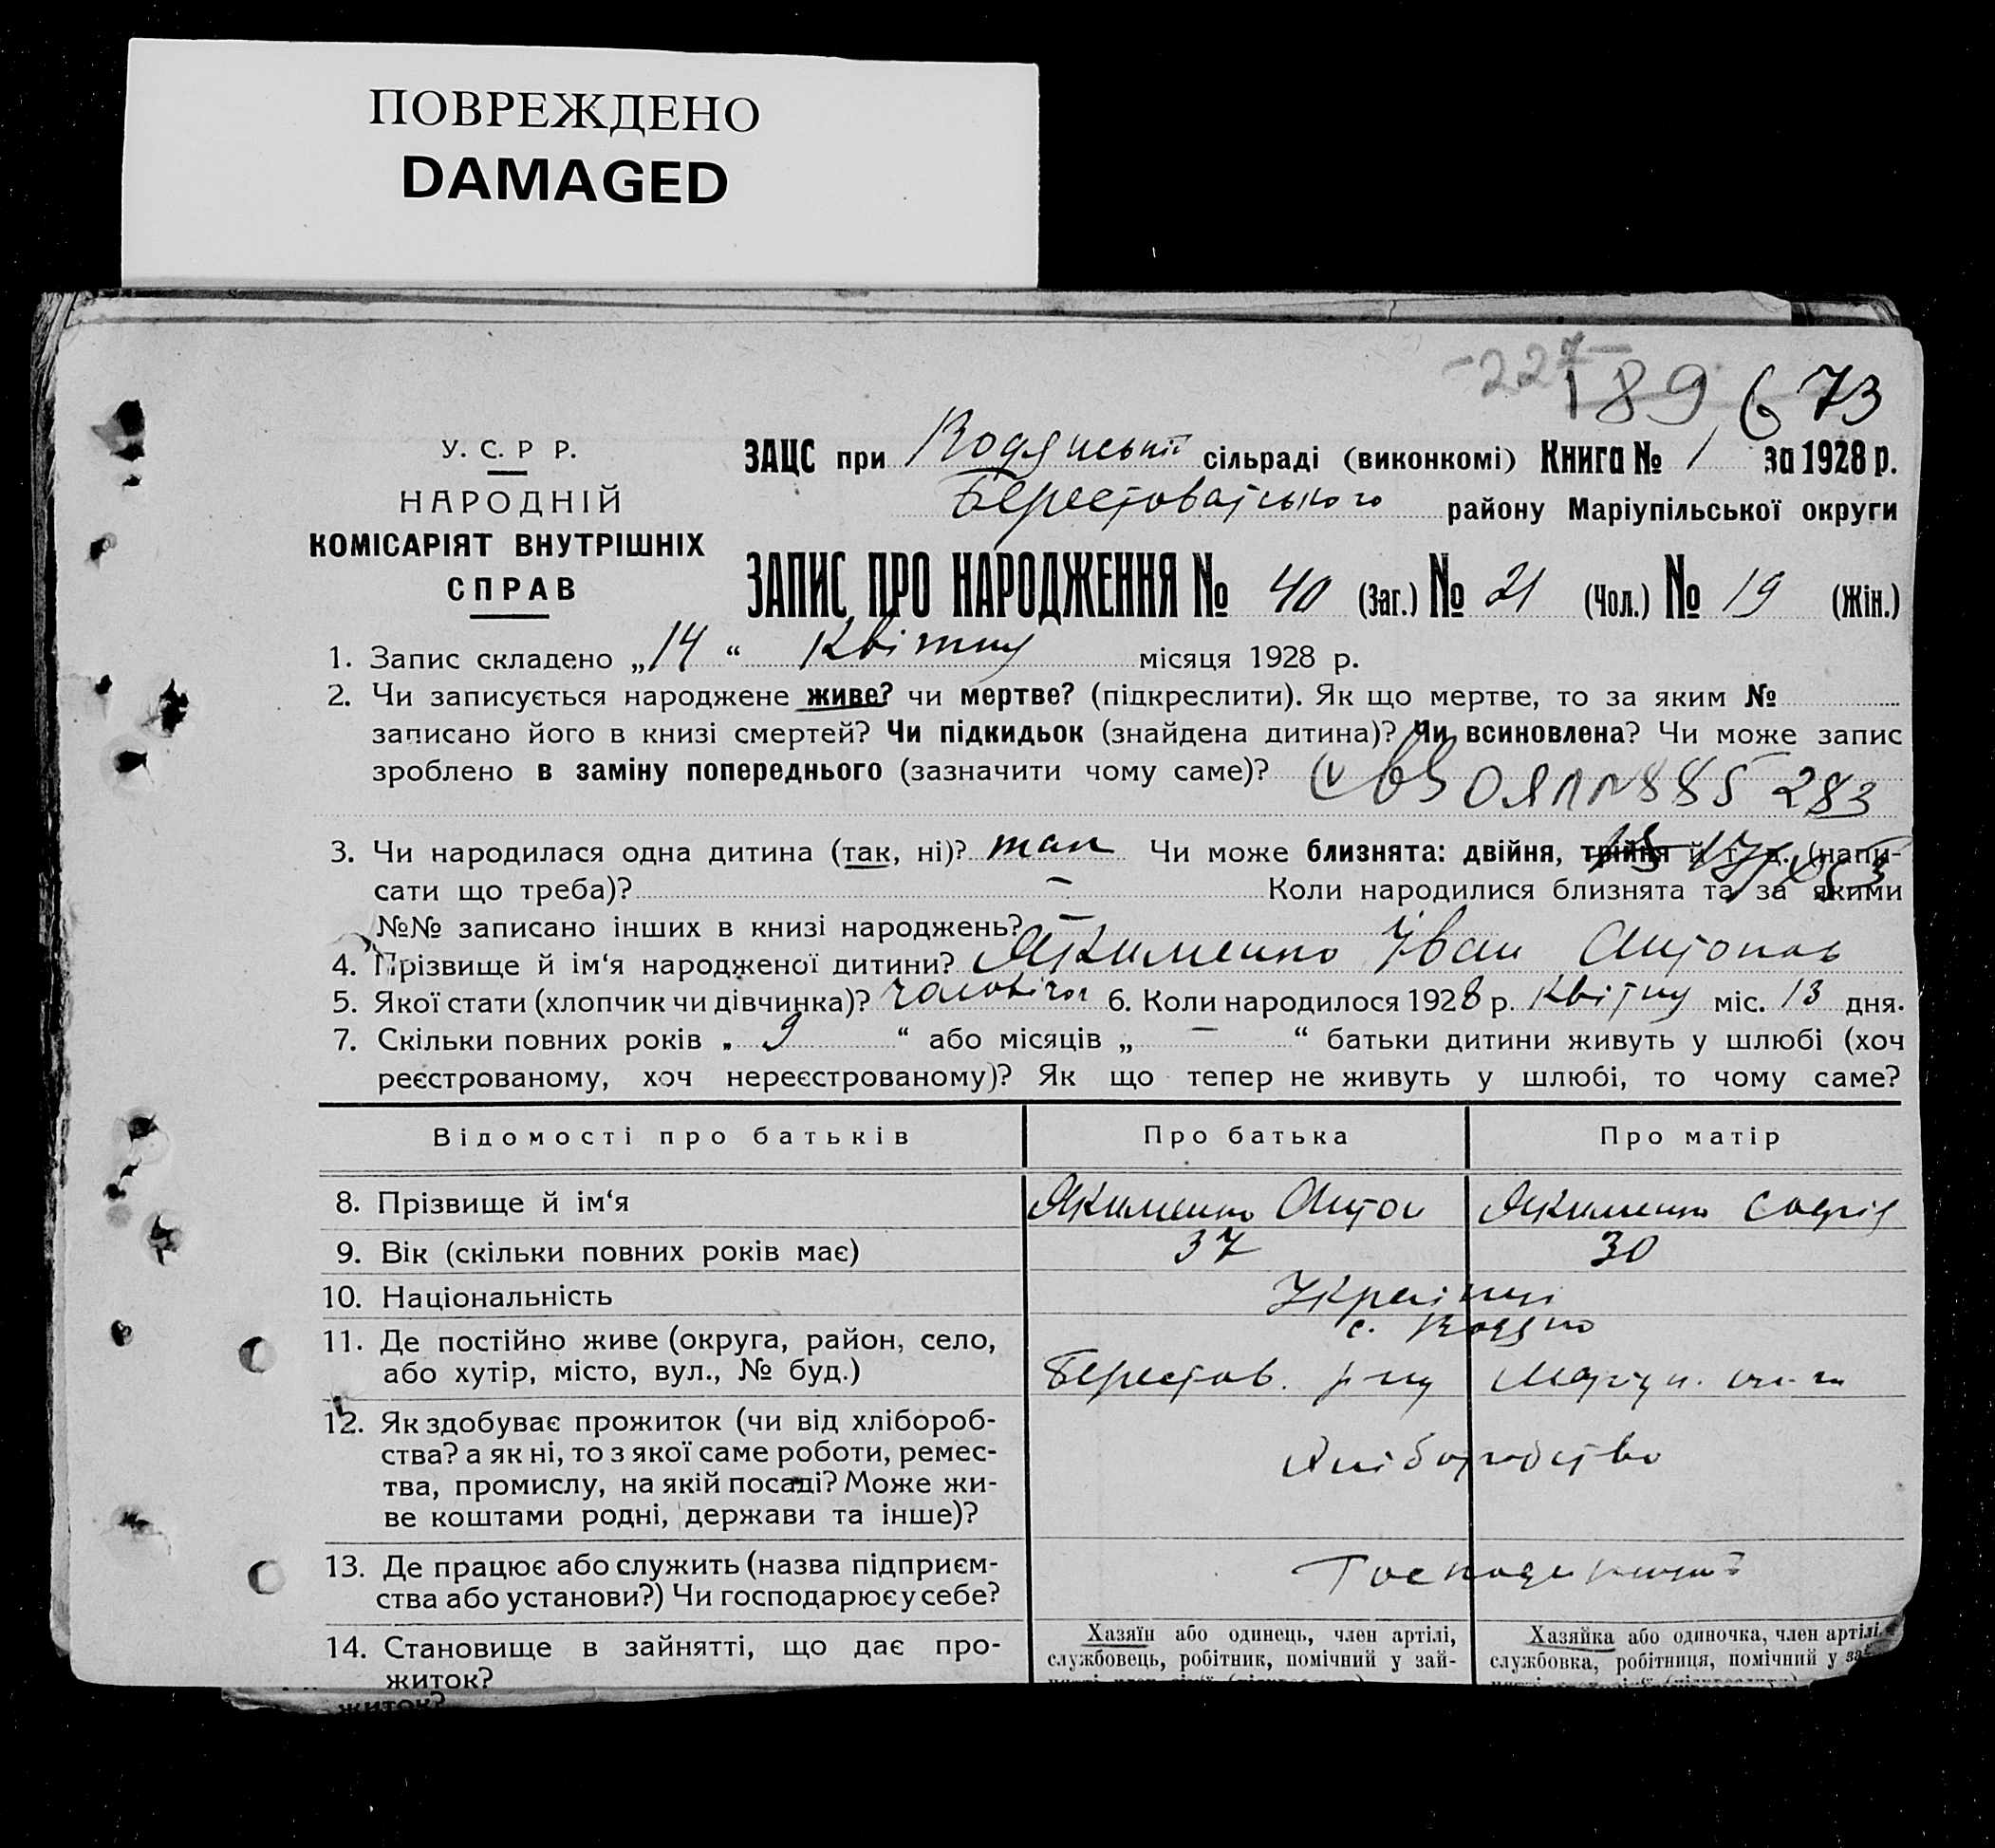 ПОВРЕЖДЕНО
DAMAGED
-227-
189 673
У. С. Р Р.
НАРОДНІЙ
КОМІСАРІЯТ ВНУТРІШНІХ
СПРАВ
ЗАЦС при Водянській сільраді (виконкомі) Книга № 1 за 1928 р.
Берестоватського району Маріупільської округи
ЗАПИС ПРО НАРОДЖЕННЯ № 40 (Заг.) № 21 (Чол.) № 19 (Жін.)
1. Запис складено „14“ Квітня місяця 1928 р.
2. Чи записується народжене живе? чи мертве? (підкреслити). Як що мертве, то за яким №
записано його в книзі смертей? Чи підкидьок (знайдена дитина)? Чи всиновлена? Чи може запис
зроблено в заміну попереднього (зазначити чому саме)? 283
3. Чи народилася одна дитина (так, ні)? так Чи може близнята: двійня, трійня й т. д. (напи-
сати що треба)? – Коли народилися близнята та за якими
№№ записано інших в книзі народжень? –
4. Прізвище й ім‘я народженої дитини? Якименко Іван Антонов
5. Якої стати (хлопчик чи дівчинка)? чоловічої 6. Коли народилося 1928 р. Квітня міс. 13 дня.
7. Скільки повних років „ 9 “ або місяців „ – “ батьки дитини живуть у шлюбі (хоч
реєстрованому, хоч нереєстрованому)? Як що тепер не живуть у шлюбі, то чому саме?
Відомості про батьків Про батька Про матір
8. Прізвище й ім‘я Якименко Антон Якименко Софія
9. Вік (скільки повних років має) 37 30
10. Національність Українці
11. Де постійно живе (округа, район, село, с. Водяно
або хутір, місто, вул., № буд.) Берестов. р-ну Маріуп. окр-ги
12. Як здобуває прожиток (чи від хлібороб-
ства? а як ні, то з якої саме роботи, ремес- Хліборобство
тва, промислу, на якій посаді? Може жи-
ве коштами родні, держави та інше)?
13. Де працює або служить (назва підприєм-
ства або установи?) Чи господарює у себе?
14. Становище в зайнятті, що дає про-
житок?
Хазяїн або одинець, член артілі,
службовець, робітник, помічний у зай-
Хазяйка або одиночка, член артілі,
службовка, робітниця, помічний у зай-
житок?